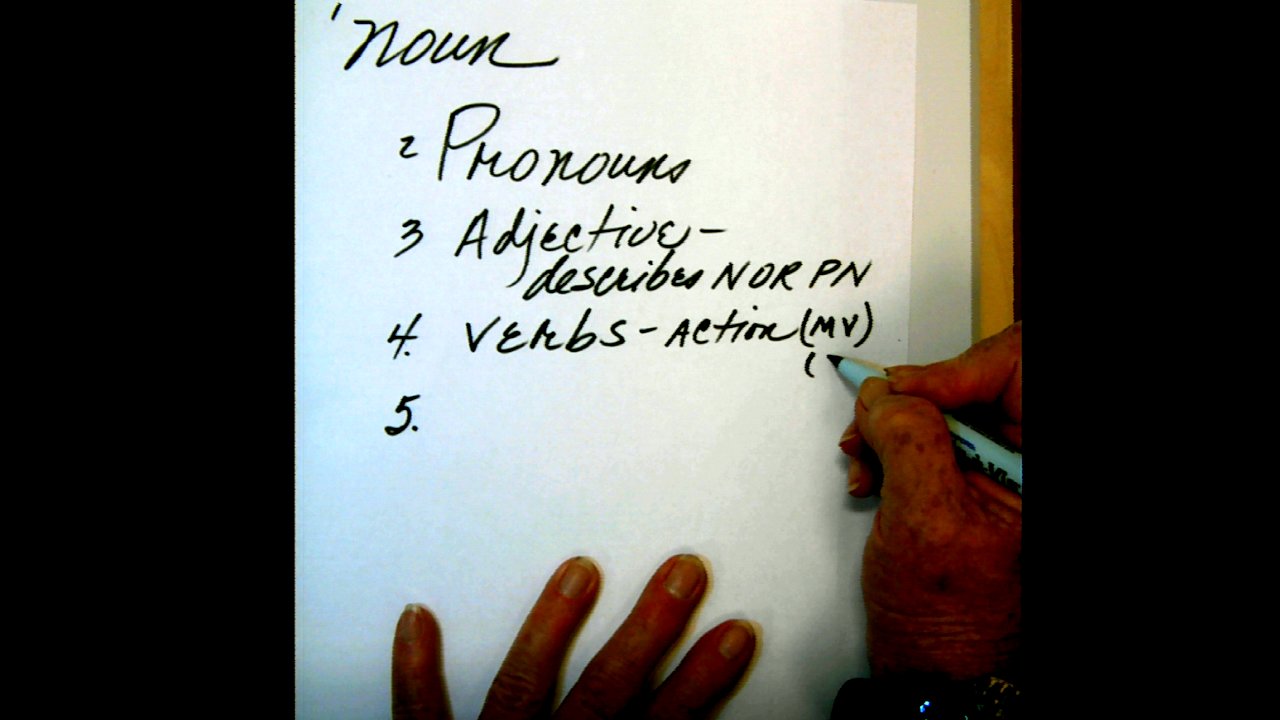 1 noun
2 Pronouns
3 Adjective -
describes N OR PN
4. Verbs - Action (MV)
(
5.